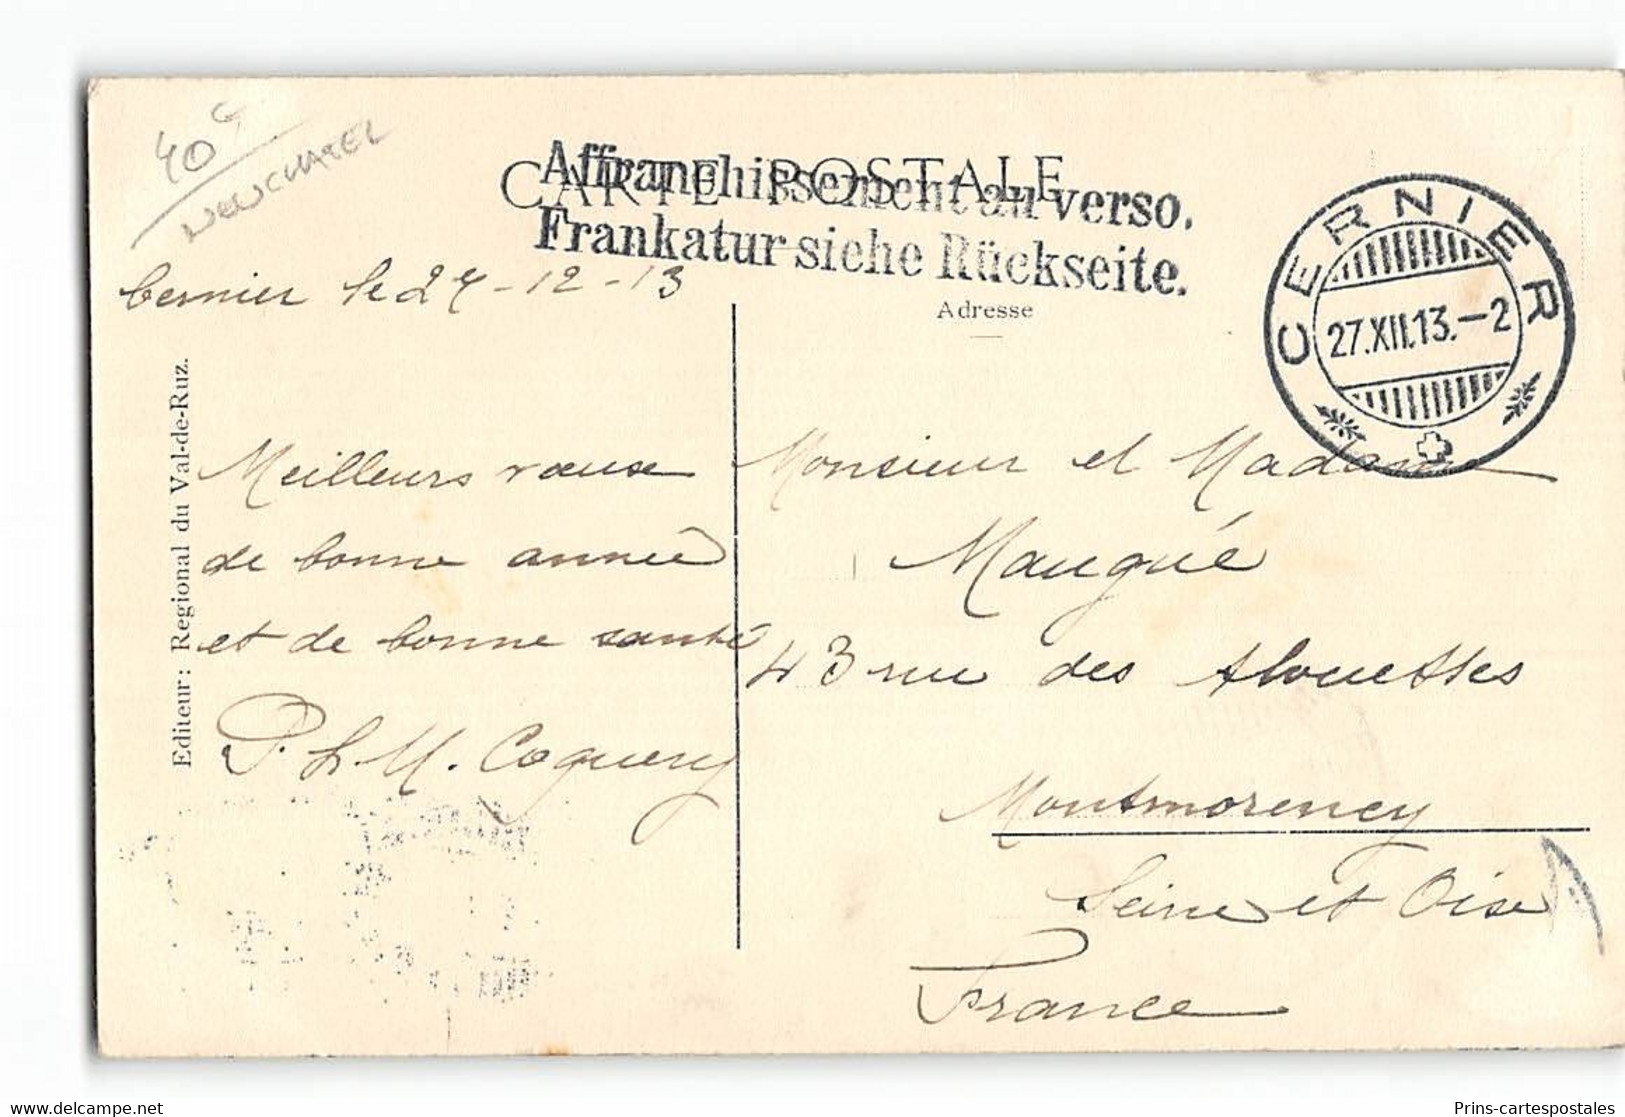 40 c
NEUCHATEL
CARTE POSTALE
Affranchissement au verso.
Frankatur siehe Rückseite.
Adresse
CERNIER
27.XII.13.-2
Cernier le 27-12-13
Meilleurs vœux
de bonne année
et de bonne santé
P. h M. Coquery
Monsieur et Madame
Maugué
43 rue des Alouettes
Montmorency
Seine et Oise
France
Editeur: Regional du Val-de-Ruz.
www.delcampe.net
Prins-cartespostales